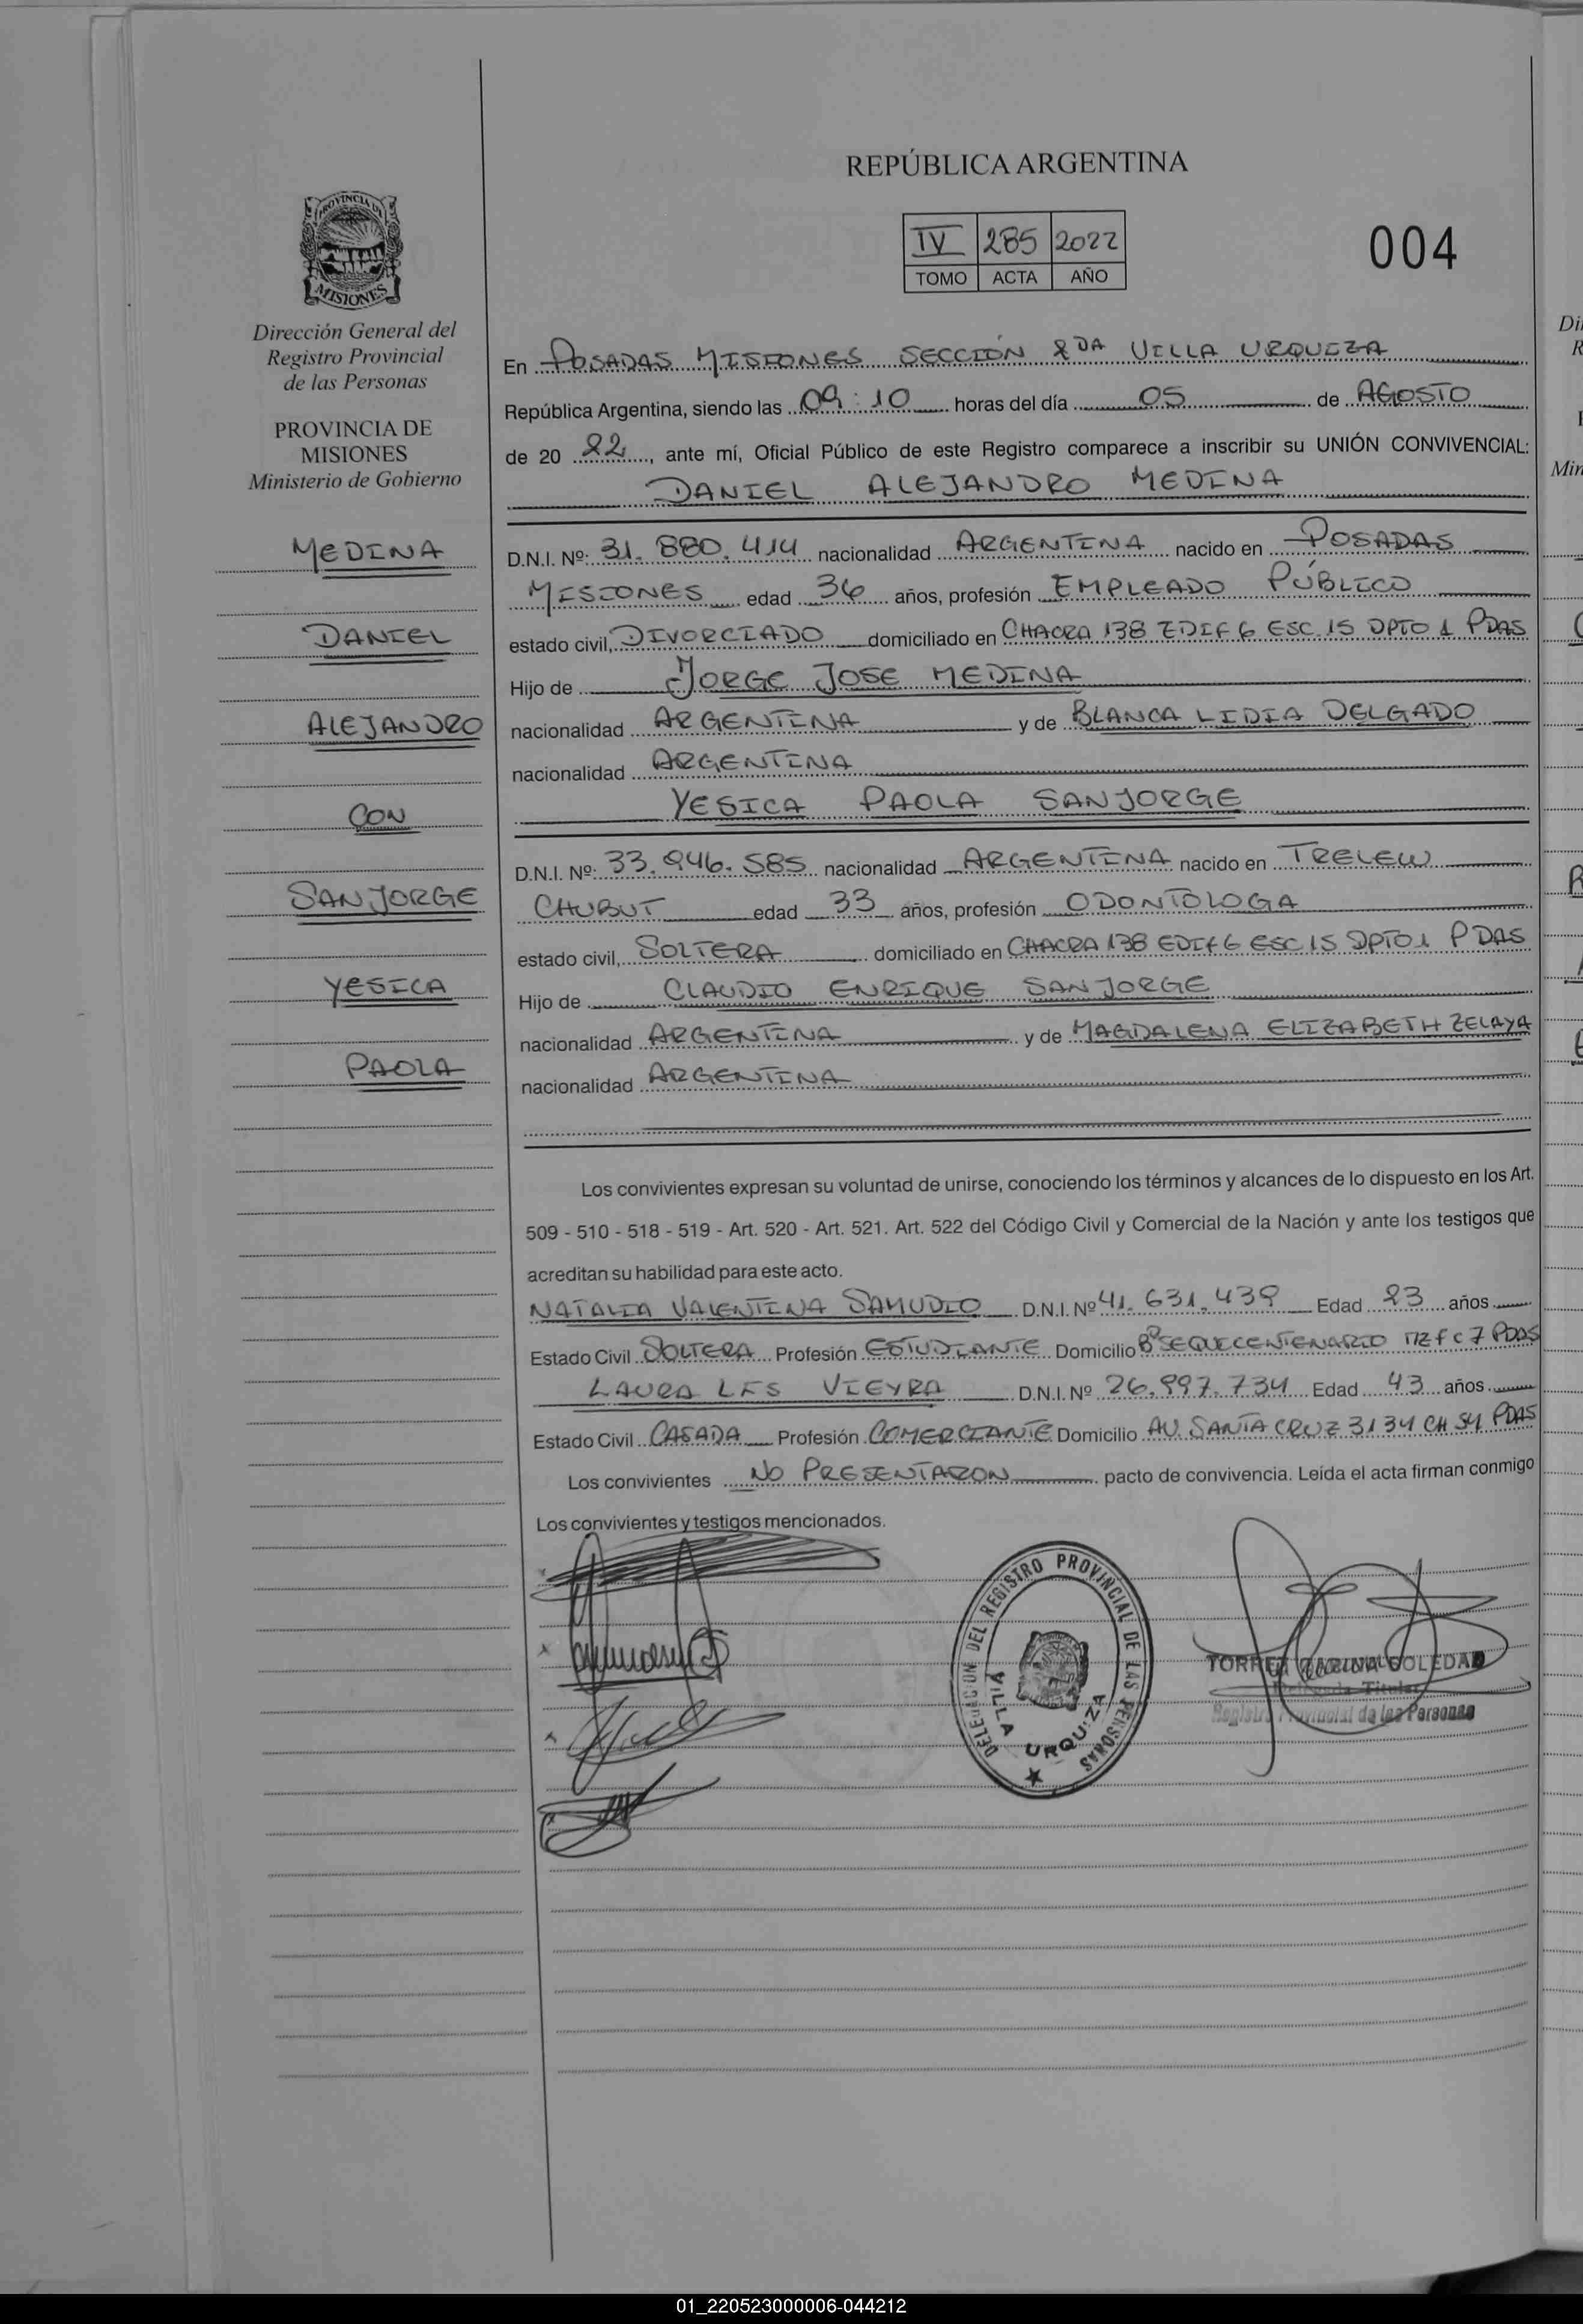 REPÚBLICA ARGENTINA
IV 285 2022
TOMO ACTA AÑO
004
PROVINCIA DE
MISIONES
Dirección General del
Registro Provincial
de las Personas
PROVINCIA DE
MISIONES
Ministerio de Gobierno
MEDINA
DANIEL
ALEJANDRO
CON
SANJORGE
YESICA
PAOLA
En POSADAS MISIONES SECCIÓN 2DA VILLA URQUIZA
República Argentina, siendo las 09:10 horas del día 05 de AGOSTO
de 20 22, ante mí, Oficial Público de este Registro comparece a inscribir su UNIÓN CONVIVENCIAL:
DANIEL ALEJANDRO MEDINA
D.N.I. Nº: 31.880.414 nacionalidad ARGENTINA nacido en POSADAS
MISIONES edad 36 años, profesión EMPLEADO PÚBLICO
estado civil, DIVORCIADO domiciliado en CHACRA 138 EDIF 6 ESC. 15 DPTO 1 PDAS
Hijo de JORGE JOSE MEDINA
nacionalidad ARGENTINA y de BLANCA LIDIA DELGADO
nacionalidad ARGENTINA
YESICA PAOLA SANJORGE
D.N.I. Nº: 33.946.585 nacionalidad ARGENTINA nacido en TRELEW
CHUBUT edad 33 años, profesión ODONTOLOGA
estado civil, SOLTERA domiciliado en CHACRA 138 EDIF 6 ESC 15 DPTO 1 PDAS
Hijo de CLAUDIO ENRIQUE SANJORGE
nacionalidad ARGENTINA y de MAGDALENA ELIZABETH ZELAYA
nacionalidad ARGENTINA
Los convivientes expresan su voluntad de unirse, conociendo los términos y alcances de lo dispuesto en los Art.
509 - 510 - 518 - 519 - Art. 520 - Art. 521. Art. 522 del Código Civil y Comercial de la Nación y ante los testigos que
acreditan su habilidad para este acto.
NATALIA VALENTINA SAMUDIO D.N.I. Nº 41.631.439 Edad 23 años
Estado Civil SOLTERA Profesión ESTUDIANTE Domicilio Bº SEQUICENTENARIO MZ F C 7 PDAS
LAURA LIS VIEYRA D.N.I. Nº 26.997.734 Edad 43 años
Estado Civil CASADA Profesión COMERCIANTE Domicilio AV. SANTA CRUZ 3134 CH 54 PDAS
Los convivientes NO PRESENTARON pacto de convivencia. Leída el acta firman conmigo
Los convivientes y testigos mencionados.
DELEGACION DEL REGISTRO PROVINCIAL DE LAS PERSONAS
VILLA URQUIZA
TORRES CARINA SOLEDAD
Delegada Titular
Registro Provincial de las Personas
01_220523000006-044212